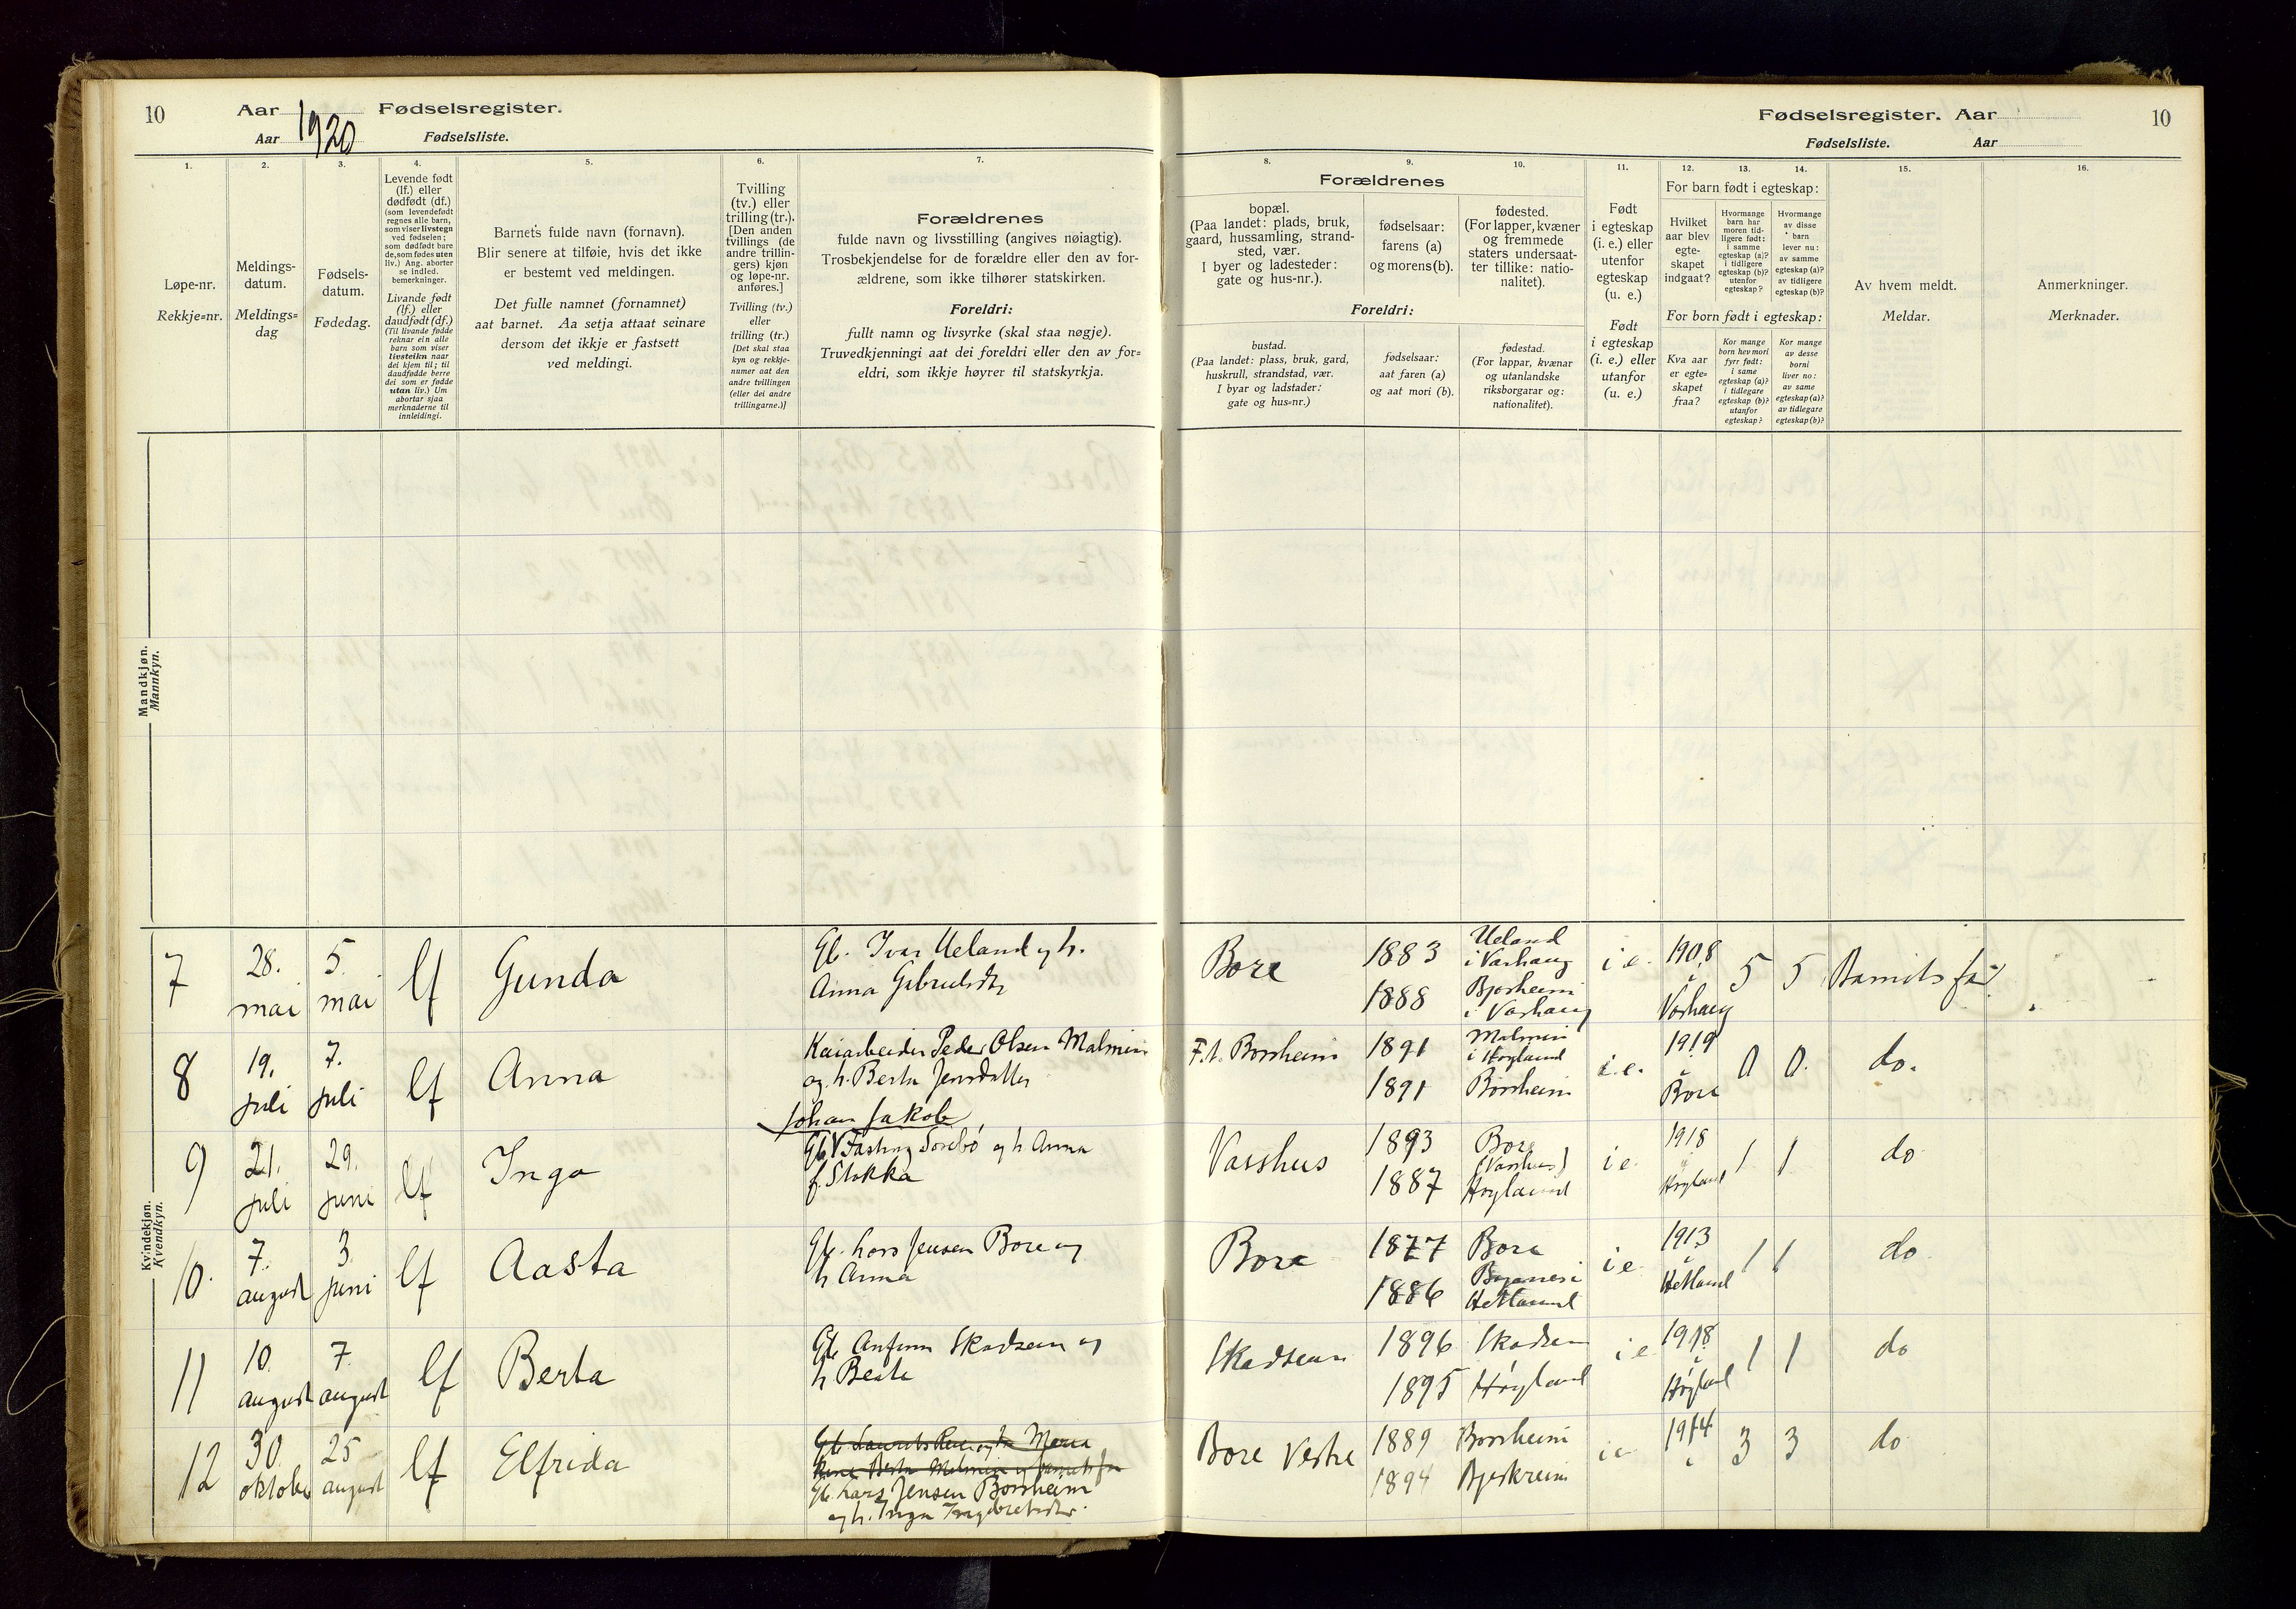 10 Aar 1920 Fødselsregister.
Aar Fødselsliste.
1. 2. 3. 4. 5. 6. 7.
Løpe-nr.
Rekkje=nr.
Meldings-
datum.
Meldings=
dag
Fødsels-
datum.
Fødedag.
Levende født
(lf.) eller
dødfødt (df.)
(som levendefødt
regnes alle barn,
som viser livstegn
ved fødselen;
som dødfødt bare
de, som fødes uten
liv.) Ang. aborter
se indled.
bemerkninger.
Livande født
(lf.) eller
daudfødt (df.)
(Til livande fødde
reknar ein alle
barn som viser
livsteikn naar
dei kjem til; til
daudfødde berre
dei som er fødde
utan liv.) Um
abortar sjaa
merknaderne til
innleidingi.
Barnets fulde navn (fornavn).
Blir senere at tilføie, hvis det ikke
er bestemt ved meldingen.
Det fulle namnet (fornamnet)
aat barnet. Aa setja attaat seinare
dersom det ikkje er fastsett
ved meldingi.
Tvilling
(tv.) eller
trilling (tr.).
[Den anden
tvillings (de
andre trillin-
gers) kjøn
og løpe-nr.
anføres.]
Tvilling (tv.)
eller
trilling (tr.)
[Det skal staa
kyn og rekkje-
numer aat den
andre tvillingen
(eller dei andre
trillingarne.)]
Forældrenes
fulde navn og livsstilling (angives nøiagtig).
Trosbekjendelse for de forældre eller den av for-
ældrene, som ikke tilhører statskirken.
Foreldri:
fullt namn og livsyrke (skal staa nøgje).
Truvedkjenningi aat dei foreldri eller den av for=
eldri, som ikkje høyrer til statskyrkja.
Mandkjøn.
Mannkyn.
Kvindekjøn.
Kvendkyn.
7 28. mai 5. mai lf Gunda
Gb. Ivar Ueland og h.
Anna
8 19. juli 7. juli lf Anna
Kaiarbeider Peder Olsen Malmin
og h. Berta Jensdatter
Johan Jakob
9 21. juli 29. juni lf Inga
Gb. Fasting Sørebø og h Anna
f. Stokka
10. 7. august 3. juni lf Aasta
Gb. Lars Jensen Bore og
h Anna
11 10. august 7. august lf Berta
Gb. Anfinn Skadsem og
h Beate
12 30. oktober 25 august lf Elfrida
Gb. Lars Jensen Borsheim
og h. Inga
Fødselsregister. Aar 10
Fødselsliste. Aar
8. 9. 10. 11. 12. 13. 14. 15. 16.
Forældrenes
bopæl.
(Paa landet: plads, bruk,
gaard, hussamling, strand-
sted, vær.
I byer og ladesteder:
gate og hus-nr.).
fødselsaar:
farens (a)
og morens (b).
fødested.
(For lapper, kvæner
og fremmede
staters undersaat-
ter tillike: natio-
nalitet).
Foreldri:
bustad.
(Paa landet: plass, bruk, gard,
huskrull, strandstad, vær.
I byar og ladstader:
gate og hus=nr.)
fødselsaar:
aat faren (a)
og aat mori (b).
fødestad.
(For lappar, kvænar
og utanlandske
riksborgarar og:
nationalitet).
Født
i egteskap
(i. e.) eller
utenfor
egteskap
(u. e.)
Født
i egteskap
(i. e.) eller
utanfor
(u. e.)
For barn født i egteskap:
Hvilket
aar blev
egte-
skapet
indgaat?
Hvormange
barn har
moren tid-
ligere født:
i samme
egteskap (a)?
i tidligere
egteskap (b)?
utenfor
egteskap?
Hvormange
av disse
barn
lever nu:
av samme
egteskap (a)?
av tidligere
egteskap (b)?
For born født i egteskap:
Kva aar
er egte=
skapet
fraa?
Kor mange
born hev mori
fyrr født:
i same
egteskap (a)?
i tidlegare
egteskap (b)?
utanfor
egteskap?
Kor mange
av desse
borni
liver no:
av same
egteskap (a)?
av tidlegare
egteskap (b)?
Av hvem meldt.
Meldar.
Anmerkninger.
Merknader.
Bore 1883 Ueland i Varhaug i e. 1908 i Varhaug 5 5 Barnets far
1888 Bjorheim i Varhaug
F. t. Borsheim 1891 Malmin i Høyland i.e. 1919 i Bore 0 0. do.
1891 Borsheim
Vasshus 1893 Bore (Vasshus) i e. 1918 i Høyland 1 1 do
1887 Høyland
Bore 1877 Bore i e 1913 i Hetland 1 1 do
1886 Hetland
Skadsem 1896 Skadsem i e 1918 i Høyland 1 1 do
1895 Høyland
Bore Vestre 1889 Borsheim i e 1914 3 3 do
1894 Bjerkreim